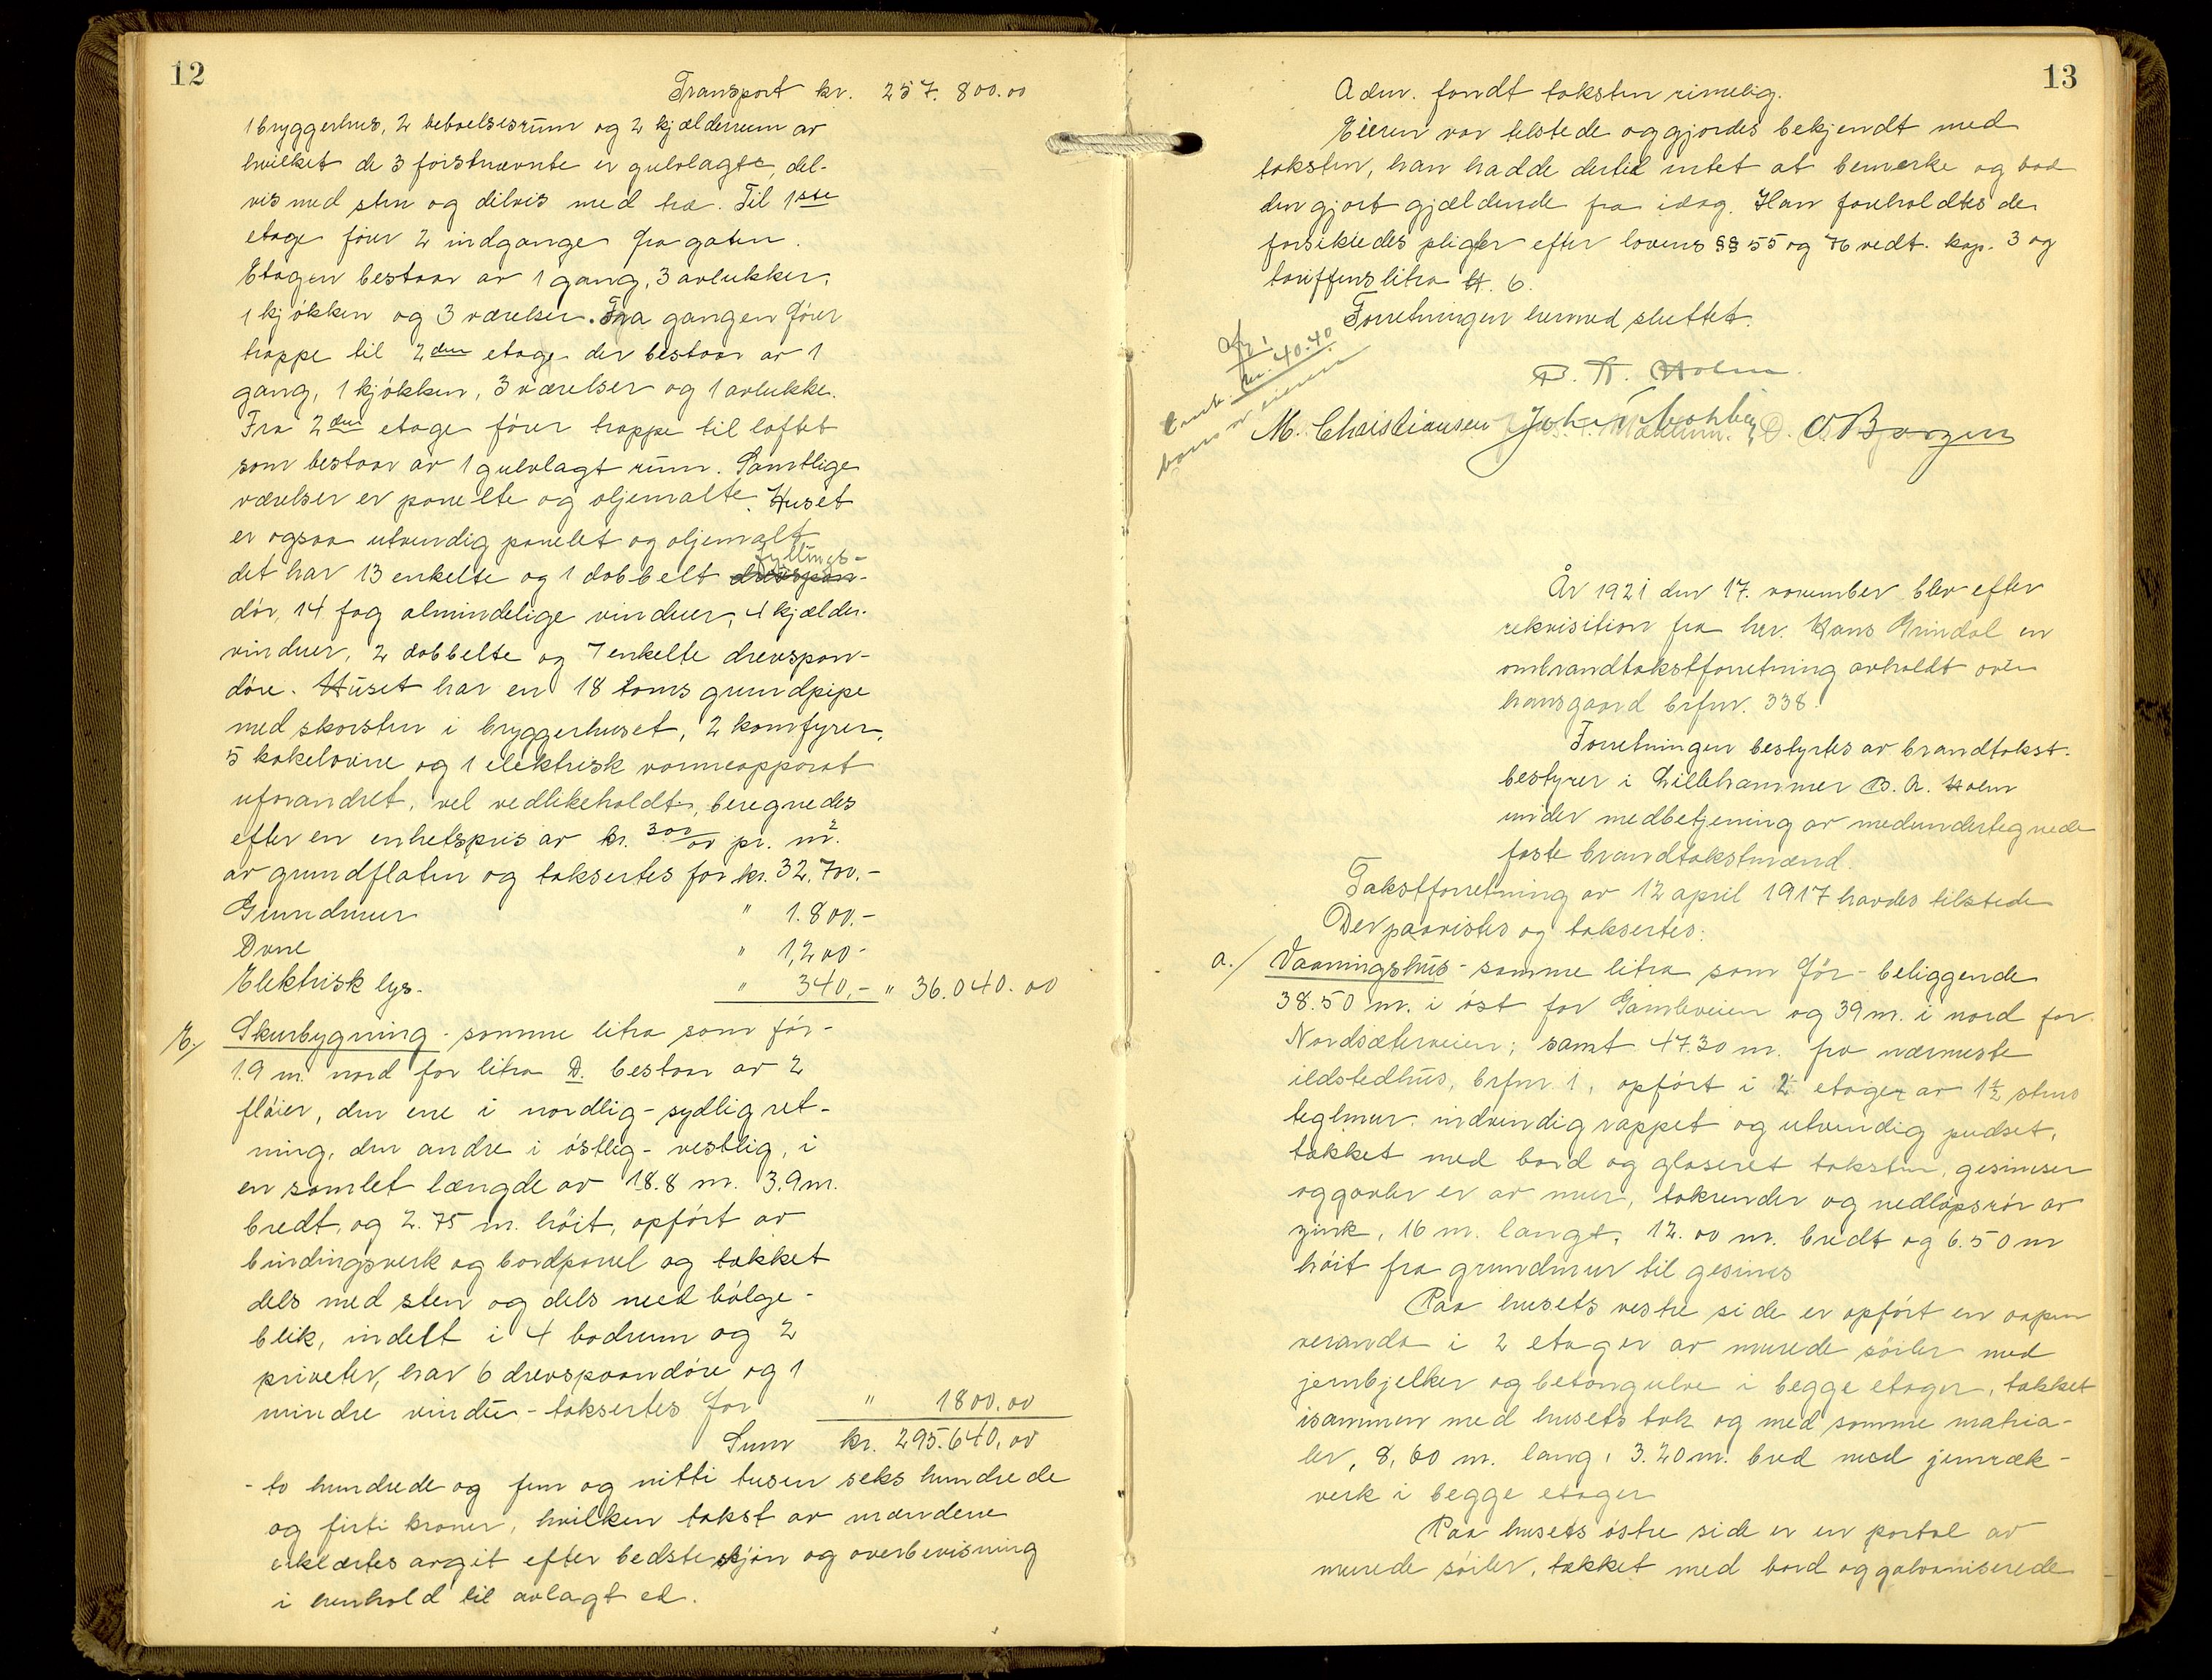 12
Transport kr. 257.800.00
1 bryggerhus, 2 beboelsesrum og 2 kjælderrum av
hvilket de 3 førstnævnte er gulvlagte, del-
vis med sten og delvis med træ. Til 1ste
etage fører 2 indgange fra gaten.
Etagen bestaar av 1 gang, 3 avlukker,
1 kjøkken og 3 værelser. Fra gangen fører
trappe til 2den etage der bestaar av 1
gang, 1 kjøkken, 3 værelser og 1 avlukke.
Fra 2den etage fører trappe til loftet
som bestaar av 1 gulvlagt rum. Samtlige
værelser er panelte og oljemalte. Huset
er ogsaa utvendig panelet og oljemalt
fyllings-
det har 13 enkelte og 1 dobbelt drevspon-
dør, 14 fag almindelige vinduer, 4 kjælder-
vinduer, 2 dobbelte og 7 enkelte drevspon-
døre. Huset har en 18 toms grundpipe
med skorsten i bryggerhuset, 2 komfyrer,
5 kakelovne og 1 elektrisk varmeapparat
uforandret, vel vedlikeholdt, beregnedes
efter en enhetspris av kr. 300/00 pr. m²
av grundflaten og taksertes for kr. 32.700.-
Grundmur " 1.800.-
Ovne " 1,200-
Elektrisk lys. " 340.- " 36.040.00
E./ Skurbygning - samme litra som før -
1.9 m. nord for litra D. bestaar av 2
fløier, den ene i nordlig-sydlig ret-
ning, den andre i østlig-vestlig, i
en samlet længde av 18.8 m. 3.9 m.
bredt, og 2.75 m. høit, opført av
bindingsverk og bordpanel og tækket
dels med sten og dels med bølge-
blik, indelt i 4 bodrum og 2
priveter, har 6 drevspaandøre og 1
mindre vindu - taksertes for " 1800.00
Sum kr. 295.640,00
- to hundrede og fem og nitti tusen seks hundrede
og firti kroner, hvilken takst av mændene
erklærtes avgit efter bedste skjøn og overbevisning
i henhold til avlagt ed.
13
Adm. fandt taksten rimelig.
Eieren var tilstede og gjordes bekjendt med
taksten, han hadde dertil intet at bemerke og bad
den gjort gjældende fra idag. Han foreholdtes de
forsikredes pligter efter lovens §§ 55 og 76 vedt. kap. 3 og
tariffens litra H. 6.
Forretningen hermed sluttet.
kr. 40.40
B. A. Holm.
M. Christiansen
År 1921 den 17. november blev efter
rekvisition fra hr. Hans Grindal en
ombrandtakstforretning avholdt over
hansgaard brfnr. 338.
Forretningen bestyrtes av brandtakst-
bestyrer i Lillehammer B. A. Holm
under medbetjening av medundertegnede
faste brandtakstmænd.
Takstforretning av 12 april 1917 havdes tilstede
Der paavistes og taksertes:
a./ Vaaningshus - samme litra som før - beliggende
38.50 m. i øst for Gamleveien og 39 m. i nord for
Nordsæterveien; samt 47.30 m. fra nærmeste
ildstedhus, brfnr 1, opført i 2 etager av 1½ stens
teglmur. indvendig rappet og utvendig pudset,
tækket med bord og glaseret taksten, gesimser
og gavler er av mur, takrender og nedløpsrør av
zink, 16 m. langt, 12.00 m. bredt og 6.50 m
høit fra grundmur til gesims
Paa husets vestre side er opført en aapen
veranda i 2 etager av murede søiler med
jernbjelker og betongulve i begge etager, tækket
isammen med husets tak og med samme matria-
ler, 8,60 m. lang, 3.20 m. bred med jernræk-
verk i begge etager
Paa husets østre side er en portal av
murede søiler, tækket med bord og galvaniserede